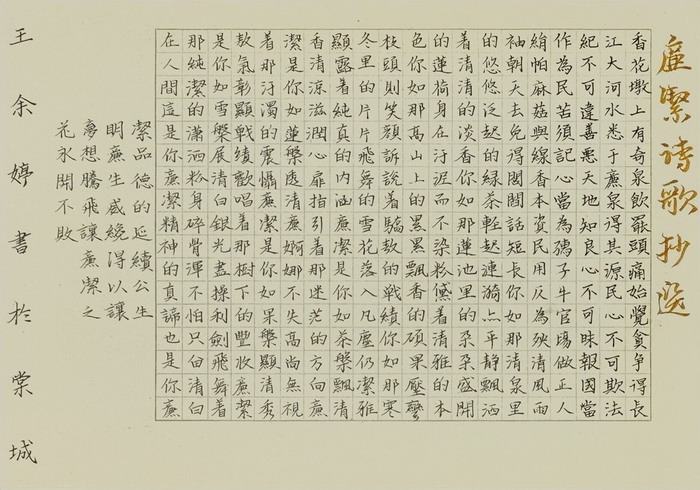 廉潔诗歌抄选
香花墩上有奇泉飲罷頭痛始覺貪爭得長
江大河水悉于廉泉得其源民心不可欺法
紀不可違善惡天地知良心不可昧報國當
作為民苦須記心當為孺子牛官場做正人
絹帕麻菇與線香本資民用反為殃清風兩
袖朝天去免得閭閻話短長你如那清泉里
的悠悠泛起的綠茶輕起漣漪点平靜飄洒
着清清的淡香你如那蓮池里的朵朵盛開
的蓮猗身在汙泥而不染粉黛着清雅的本
色你如那高山上的累累飄香的碩果壓彎
枝頭則笑顏訴說着驕敖的戰績你如那寒
冬里的片片飛舞的雪花落入凡塵仍潔雅
顯露着純真的内涵廉潔是你如茶檠飄清
香清涼滋潤心扉指引着那迷茫的方向廉
潔是你如蓮檠透清廉婀娜不失高尚無視
着那汙濁的震懾廉潔是你如果檠顯清秀
敖氣彰顯戰績歡唱着那樹下的豐收廉潔
是你如雪檠展清白銀光晝操利劍飛舞着
那純潔的瀟洒粉身碎骨渾不怕只由清白
在人間這是你廉潔精神的真諦也是你廉
潔品德的延續公生
明廉生威繞得以讓
夢想騰飛讓廉潔之
花永開不敗
王余婷書於棠城